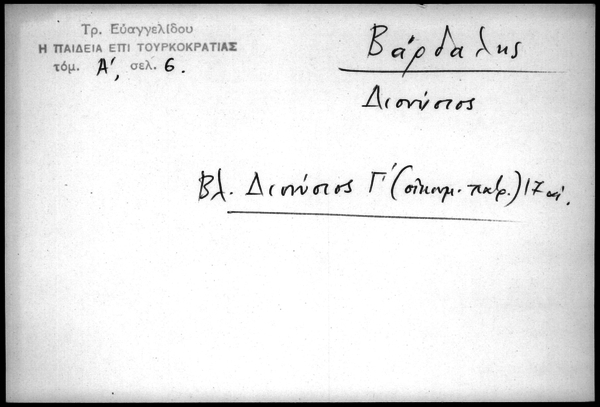 Τρ. Εὐαγγελίδου
Η ΠΑΙΔΕΙΑ ΕΠΙ ΤΟΥΡΚΟΚΡΑΤΙΑΣ
τόμ. Α', σελ. 6.
Βάρδαλης
Διονύσιος
Βλ. Διονύσιος Γ' (οἰκουμ. πατρ.) 17 αἰ.